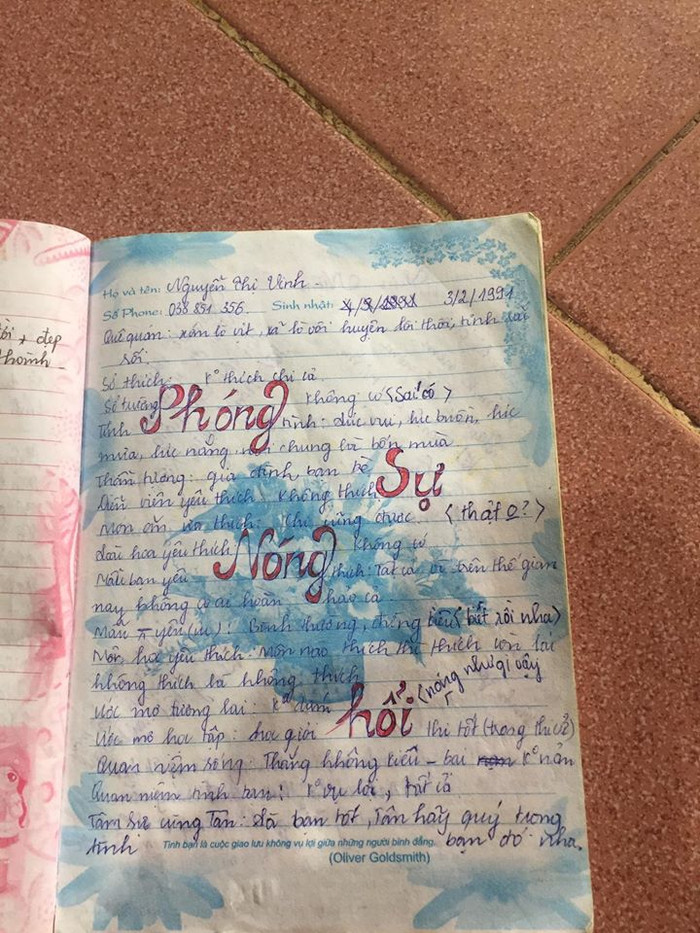 ồi, đẹp
Họ và tên: Nguyễn Thị Vinh -
Số Phone: 038 851 356. Sinh nhật: 3/2/1991
Quê quán: xóm lò vịt, xã lò vôi huyện lôi thôi, tỉnh
rối.
Sở thích: K° thích chi cả
Sở trường Phóng không có <Sai có>
Tính tình: lúc vui, lúc buồn, lúc
mưa, lúc nắng, nói chung là bốn mùa
Thần tượng: gia đình, bạn bè Sự
Diễn viên yêu thích: Không thích
Món ăn ưa thích: Chi cũng được <thật o?>
Loài hoa yêu thích Nóng không có
Mẫu bạn yêu thích: Tất cả vì trên thế gian
nay không có ai hoàn hảo cả
Mẫu yêu (m): Bình thường, chống <bết rồi nha>
Môn học yêu thích: Môn nào thích thì thích còn lại
không thích là không thích <nóng như gì vậy
Ước mơ tương lai: K° dám hổi
Ước mơ học tập: học giỏi thi tốt (trong thi cử)
Quan niệm sống: Thắng không kiêu - bại K° nản
Quan niệm tình bạn: K° vụ lợi, tất cả
Tâm sự cùng Tân: đã bạn tốt, Tân hãy quý trọng
tình bạn đó nha.
Tình bạn là cuộc giao lưu không vụ lợi giữa những người bình đẳng.
(Oliver Goldsmith)